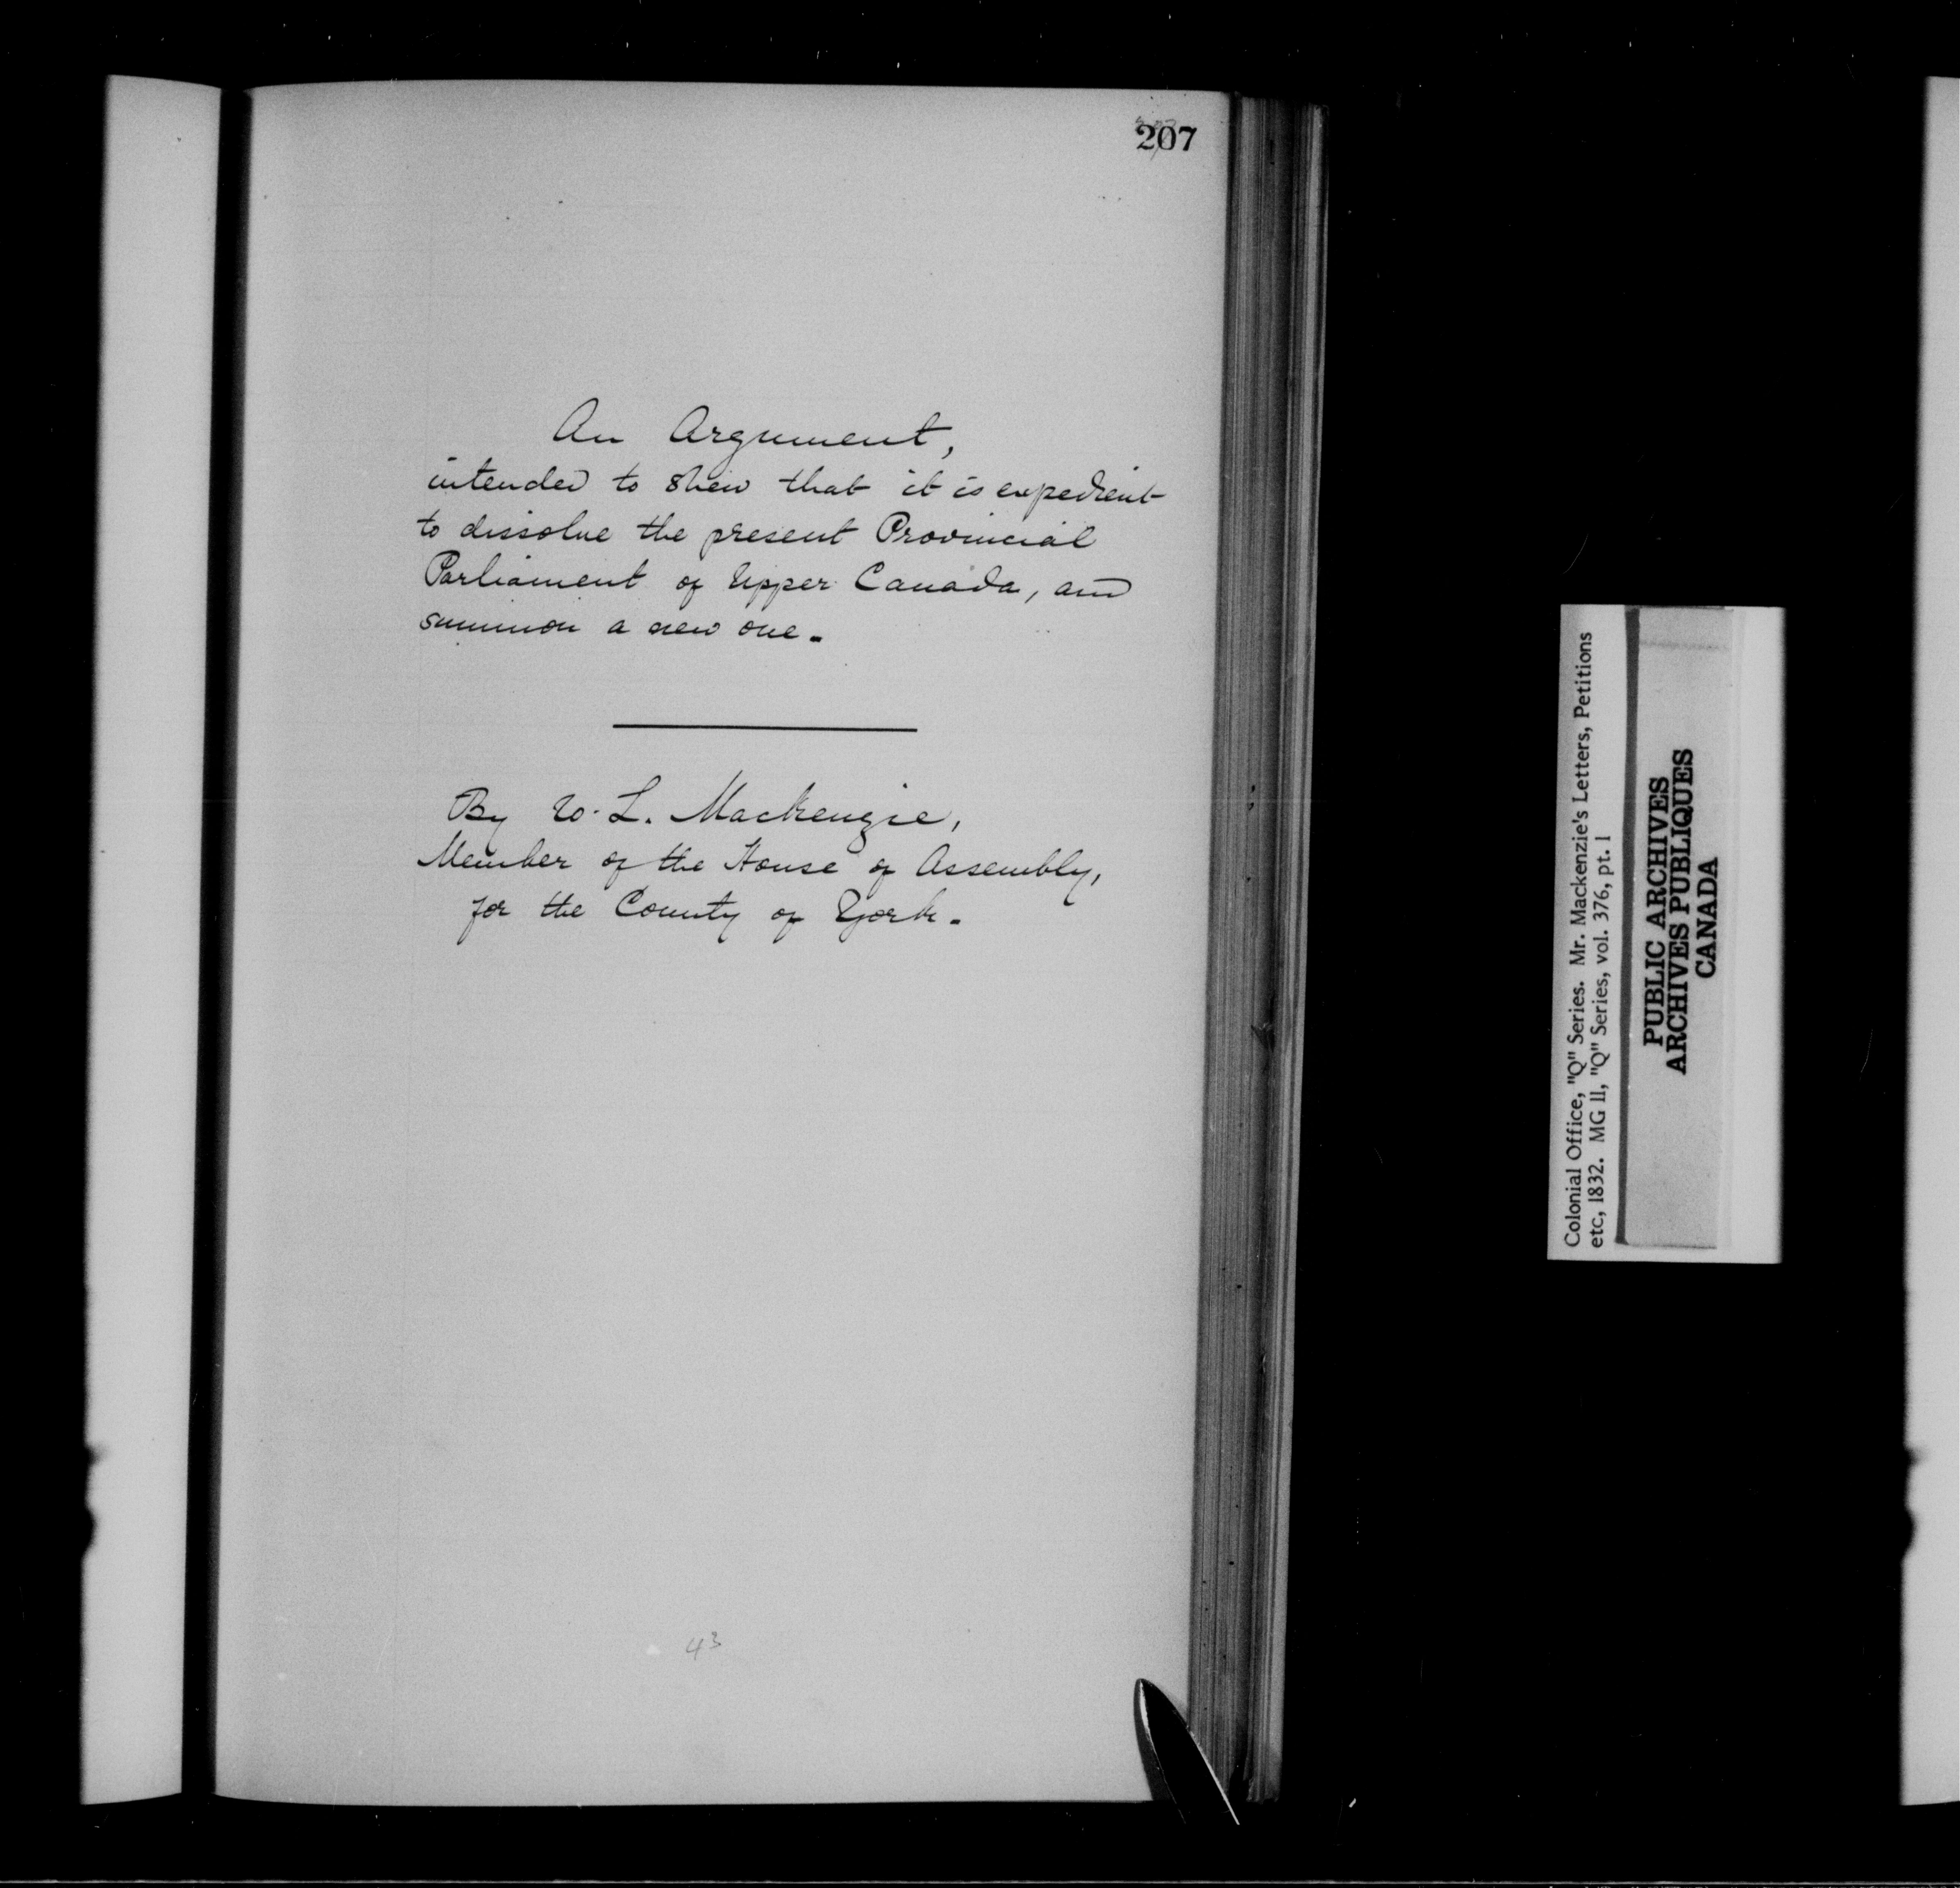 207
An Argument,
intended to shew that it is expedient
to dissolve the present Provincial
Parliament of Upper Canada, and
summon a new one.
By W. L. Mackenzie,
Member of the House of Assembly,
for the County of York.
43
Colonial Office, "Q" Series. Mr. Mackenzie's Letters, Petitions
etc, 1832. MG 11, "Q" Series, vol. 376, pt. 1
PUBLIC ARCHIVES
ARCHIVES PUBLIQUES
CANADA